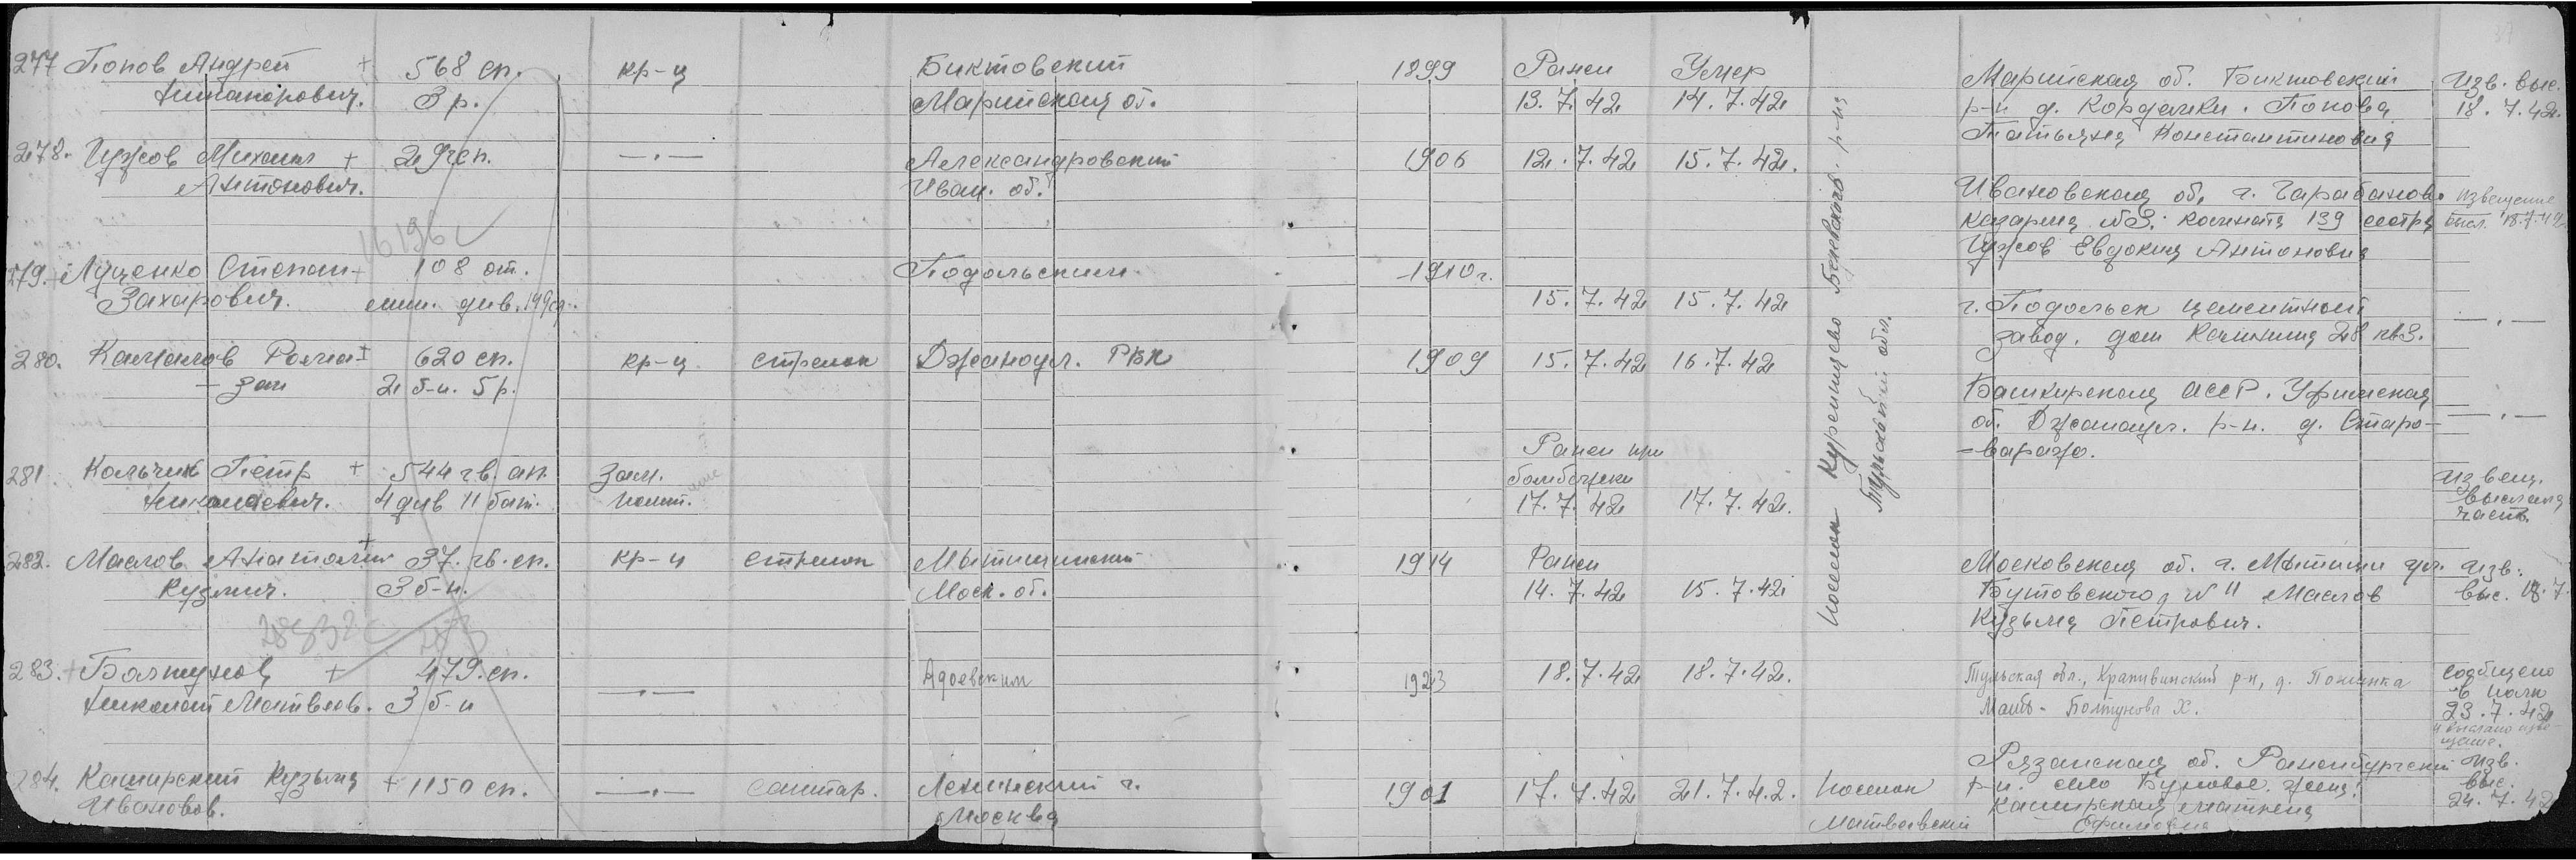 277 Попов Андрей + 568 сп. кр-ц Биктовский 1899 Ранен Умер Марийская об. Биктовский Изв. выс.
Никанорович. 3 р. Марийская об. 13.7.42 14.7.42 р-н д. Попова 18.7.42.
Татьяна Константиновна
278. Михаил + сп. —〃— Александровский 1906 12.7.42 15.7.42.
Антонович. Иван. об. Ивановская об. г. Карабаново Извещение
16196 казарма №3. комната 139 сестра высл. 18.7.42
Евдокия Антоновна
279. Луценко Степан + 108 от. Подольский 1910 г.
Захарович. мин. див. 15.7.42 15.7.42 г. Подольск цементный —〃—
завод. дом Калинина 28 кв 3.
280. Камалов Рама- + 620 сп. кр-ц стрелок Джанаул. РВК 1909 15.7.42 16.7.42
- зан 2 б-н. 5 р. Башкирская АССР. Уфимская —〃—
об. Джанаул. р-н. д. Старо-
Ранен при
281. Кольчик Петр + 544 гв. ап. зам. бомбежке Извещ.
Николаевич. 4 див 11 бат. полит. 17.7.42 17.7.42. выслана
часть
Поселок Куреинцево р-на
Тульской обл.
282. Маслов Анатолий + 37. гв. сп. кр-ц стрелок Мытищинский 1914 Ранен Московская об. г. Мытищи ул. Изв.
Кузмич. 3 б-н. Моск. об. 14.7.42 15.7.42 Бутовского № 11 Маслов выс. 18.7.
Кузьма Петрович.
283. Болтунов + 479. сп. —〃— Адоевским 1923 18.7.42 18.7.42. Тульская обл., Крапивинский р-н, д. Сообщено
Николай Матвеев. 3 б-н Мать - Болтунова Х. в полк
23.7.42
и выслано изве
щение.
284. Каширский Кузьма + 1150 сп. —〃— санитар. Ленинский г. 1901 17.7.42 21.7.42. Поселок Рязанская об. Раненбургский Изв.
Иванов. Москва Матвеевский р-н. село жена: выс.
Каширская Матрена 24.7.42
Ефимовна